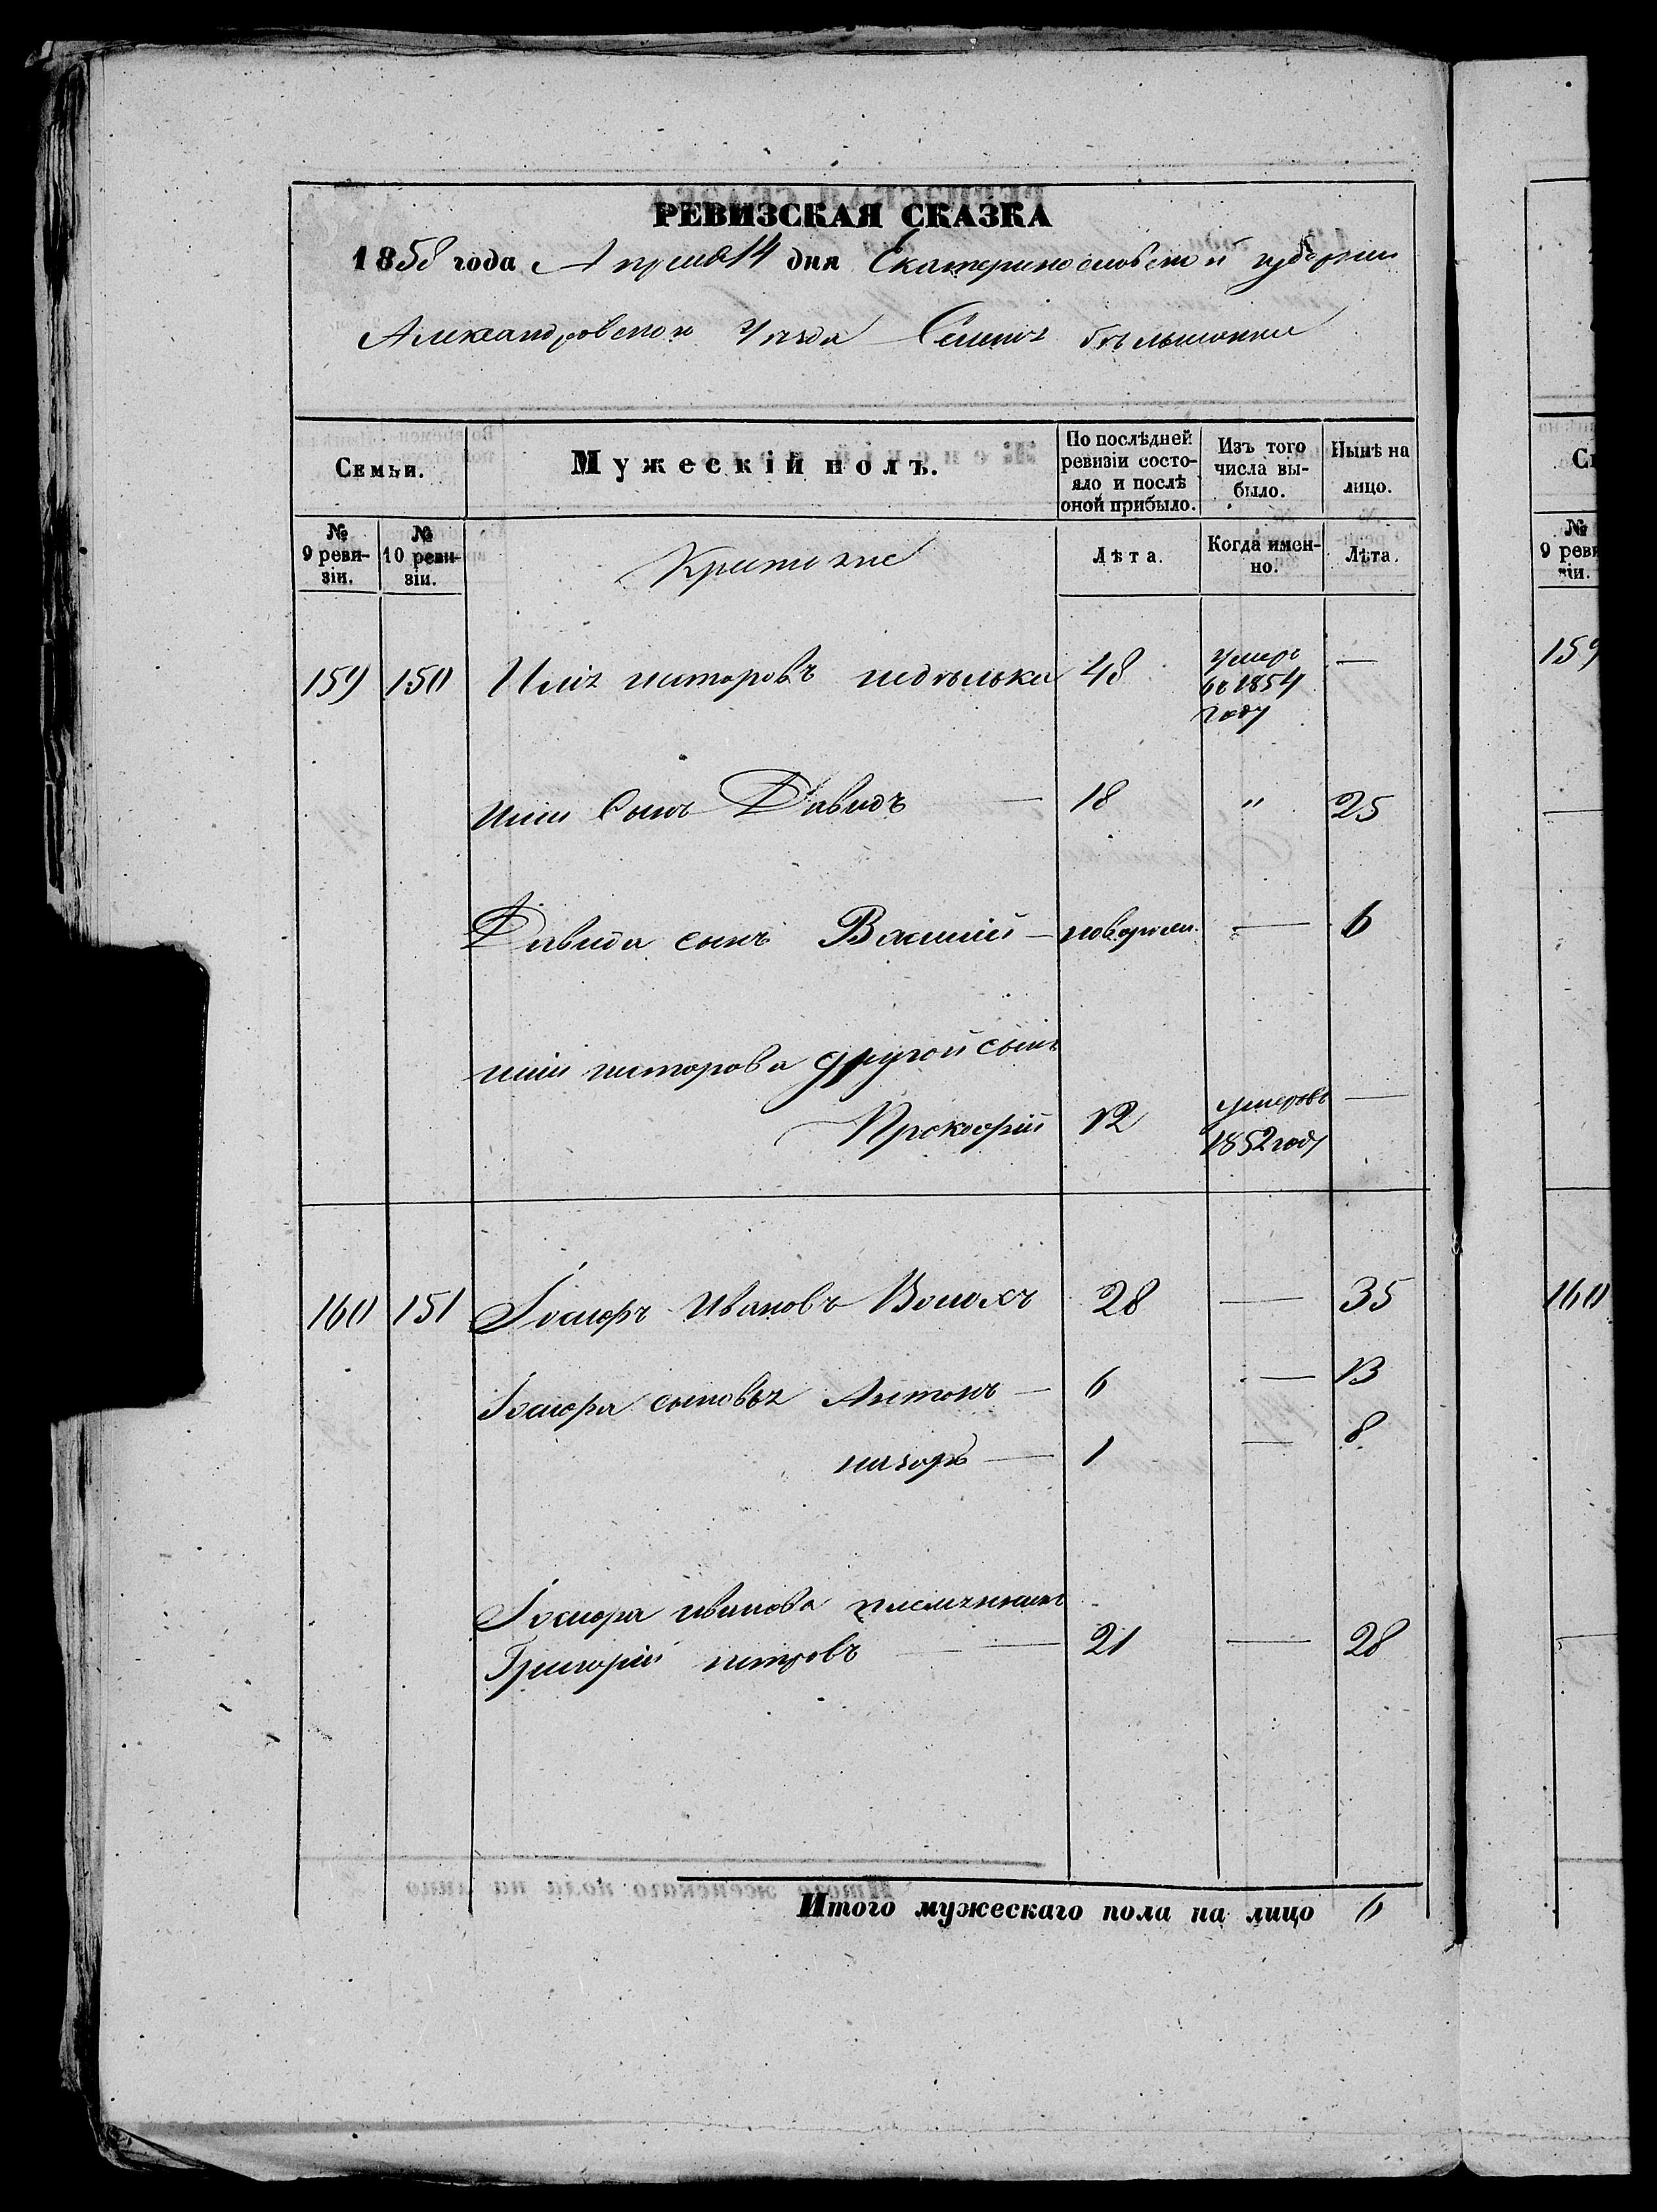 РЕВИЗСКАЯ СКАЗКА
1858 года Апреля 14 дня Екатеринославской губернии
Александровского Уезда Села
Семьи.
Мужескій полъ.
По послѣдней ревизіи состояло и послѣ оной прибыло.
Изъ того числа выбыло.
Нынѣ на лицо.
№ 9 ревизіи.
№ 10 ревизіи.
Лѣта.
Когда именно.
Лѣта.
159 150 Илія недѣлька 48 умеръ въ 1854 году —
Иліи Сынъ Давидъ — 18 " 25
Давида сынъ Василій — новорожден. — 6
Иліи другой сынъ
Прокофій 12 умеръ въ 1852 году —
160 151 Іосифъ Ивановъ Волохъ 28 — 35
Іосифа сыновья Антонъ — 6 — 13
назаръ — 1 — 8
Іосифа иванова племянникъ
Григорій петровъ — 21 — 28
Итого мужескаго пола на лицо 6
Си
№ 9 реви
зіи.
159
160